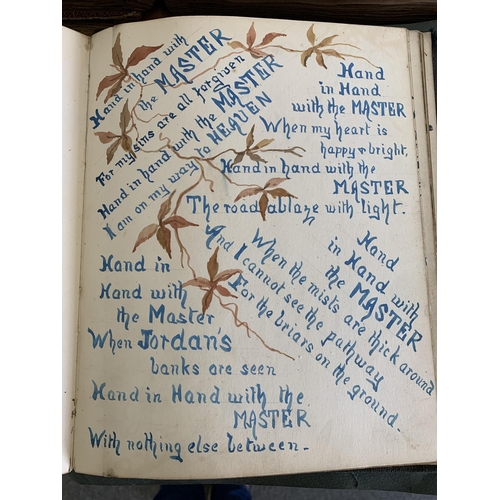 Hand in hand with
the MASTER
For my sins are all forgiven
Hand in hand with the MASTER
I am on my way to HEAVEN
Hand
in Hand
with the MASTER
When my heart is
happy & bright,
Hand in hand with the
MASTER
The road ablaze with light.
Hand
in Hand with
the MASTER
When the mists are thick around
And I cannot see the pathway
For the briars on the ground.
Hand in
Hand with
the Master
When Jordan's
banks are seen
Hand in Hand with the
MASTER
With nothing else between.